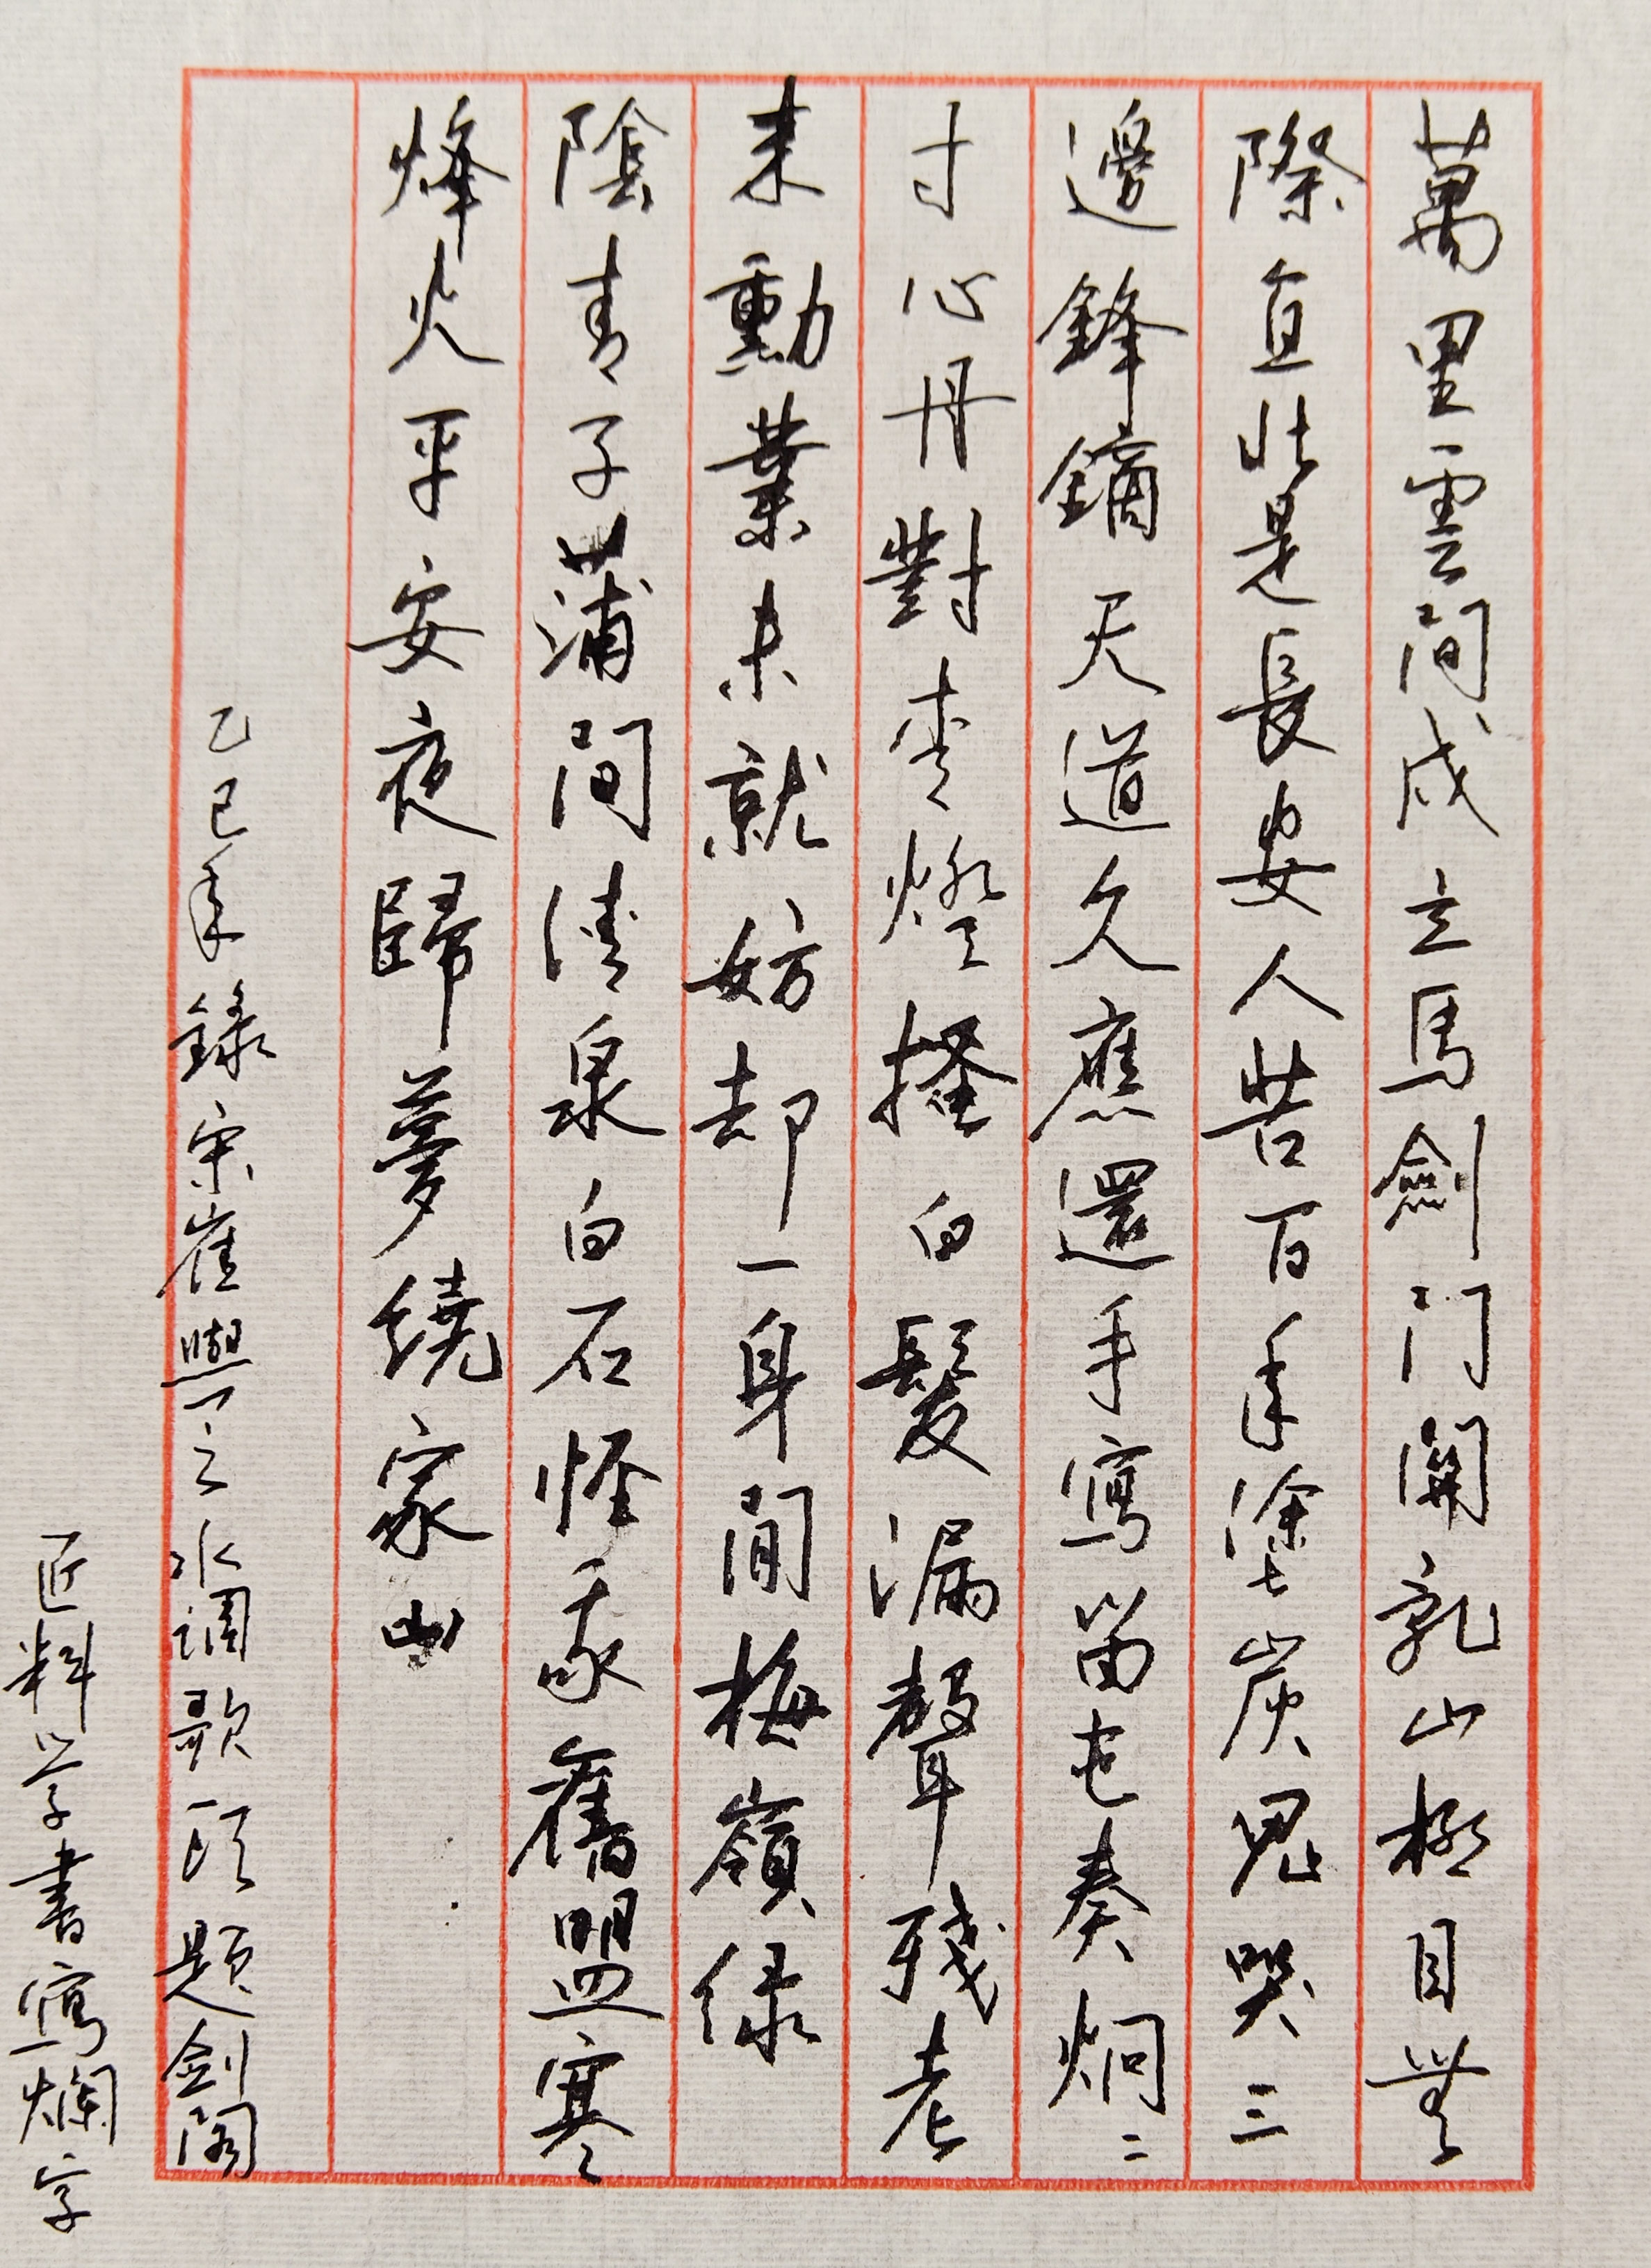 萬里雲間戍立馬劍門關乱山極目無
際直北是長安人苦百年塗炭鬼哭三
邊鋒鏑天道久應還手寫留屯奏炯〻
寸心丹對青燈搔白髮漏聲殘老
来勳業未就妨却一身閒梅嶺绿
陰青子蒲間清泉白石怪我舊盟寒
烽火平安夜歸夢繞家山
乙巳年錄宋崔與之水調歌頭題劍閣
匠料学書寫爛字